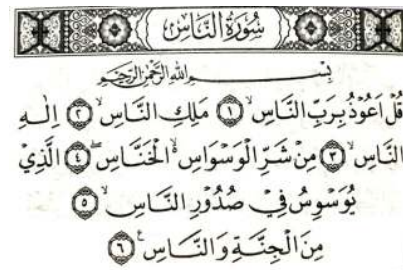 سُورَةُ النَّاسِ
بِسْمِ اللهِ الرَّحْمٰنِ الرَّحِيْمِ
قُلْ اَعُوْذُ بِرَبِّ النَّاسِۙ ۝١ مَلِكِ النَّاسِۙ ۝٢ اِلٰهِ
النَّاسِۙ ۝٣ مِنْ شَرِّ الْوَسْوَاسِ ۙ الْخَنَّاسِۖ ۝٤ الَّذِيْ
يُوَسْوِسُ فِيْ صُدُوْرِ النَّاسِۙ ۝٥
مِنَ الْجِنَّةِ وَالنَّاسِࣖ ۝٦